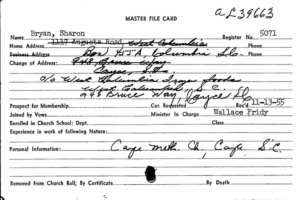 AL39663
MASTER FILE CARD
Name Bryan, Sharon Register No. 5071
Home Address 1117 Augusta Road West Columbia Phone
Business Address Box 45A, Columbia S.C. Phone
Change of Address: 948 Bruce Way
Cayce, S.C.
c/o West Columbia
West Columbia, S.C.
948 Bruce Way, Cayce SC
Prospect for Membership Car. Requested Rec'd. 11-13-55
Joined by Vows Minister in Charge Wallace Fridy
Enrolled in Church School: Dept. Class
Experience in work of following Nature:
Personal Information: Cayce Meth. Ch, Cayce S.C.
Removed from Church Roll; By Certificate By Death